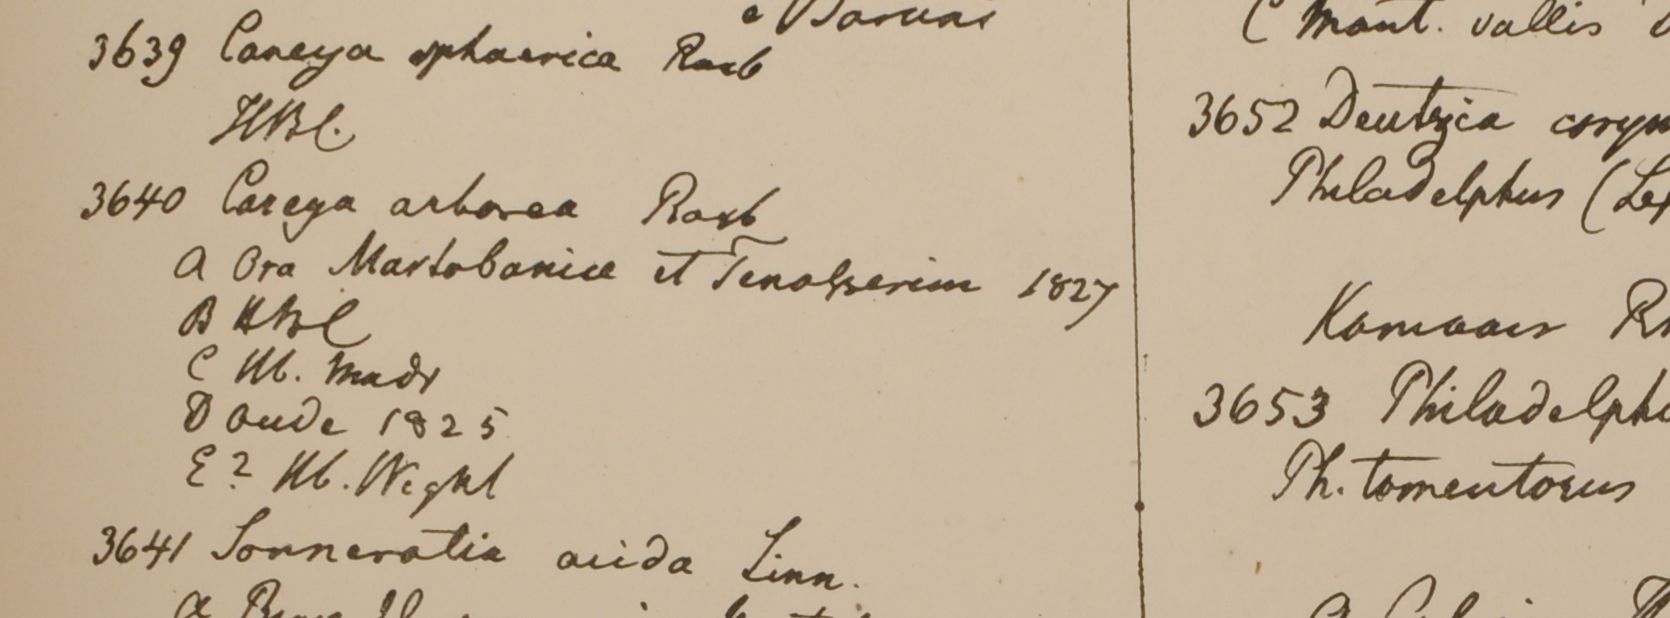 3639 Careya sphaerica Roxb
HBC.
3640 Careya arborea Roxb
a Ora Martabanica et Tenasserim 1827
B HBC
C Hb. Madr
D Oude 1825
E? Hb. Wight
3641 Sonneratia acida Linn.
C Mont. vallis
3652 Deutzia corym
Philadelphus (Le
Kamaon R
3653 Philadelph
Ph. tomentosus